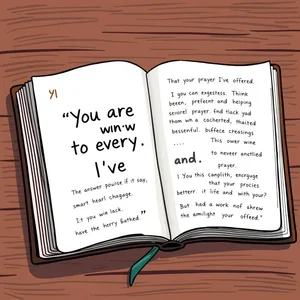 yı
“You are
win·w
to every.
I've
The answer pouise.if it say,
smart hearl chagage.
It you win lack.
have the herry Bathed.”
That your prayer I've offered.
I you can exgestess. Think
been, prefecnt and helping
senorel prayer find tlack yad
thom wn a cocherted, thaited
bessenful. biffece cheasings
.... This ower wine
and. to never anctlied
prayer.
I You this canplith, encrguge
that your procies
betterr. it life and with your?
But had a work nof ahrew
the amilight your offeed."